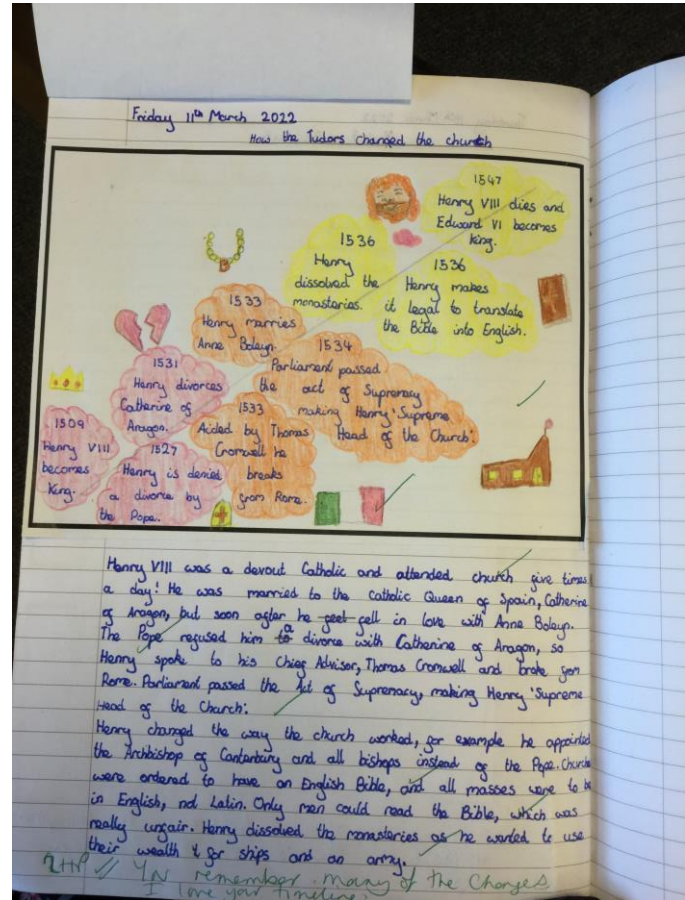 Friday 11th March 2022
How the Tudors changed the church
1509
Henry VIII
becomes
King.
1527
Henry is denied
a divorce by
the Pope.
1531
Henry divorces
Catherine of
Aragon.
1533
Aided by Thomas
Cromwell he
breaks
from Rome.
1533
Henry marries
Anne Boleyn.
1534
Parliament passed
the act of Supremacy
making Henry 'Supreme
Head of the Church'.
1536
Henry
dissolved the
monasteries.
1536
Henry makes
it legal to translate
the Bible into English.
1547
Henry VIII dies and
Edward VI becomes
King.
B
Henry VIII was a devout Catholic and attended church five times
a day! He was married to the Catholic Queen of Spain, Catherine
of Aragon, but soon after he feel fell in love with Anne Boleyn.
The Pope refused him to a divorce with Catherine of Aragon, so
Henry spoke to his Chief Advisor, Thomas Cromwell and broke from
Rome. Parliament passed the Act of Supremacy, making Henry 'Supreme
Head of the Church'.
Henry changed the way the church worked, for example he appointed
the Archbishop of Canterbury and all bishops instead of the Pope. Churches
were ordered to have an English Bible, and all masses were to be
in English, not Latin. Only men could read the Bible, which was
really unfair. Henry dissolved the monasteries as he wanted to use
their wealth for ships and an army.
2HP remember many of the changes
I love your timeline.